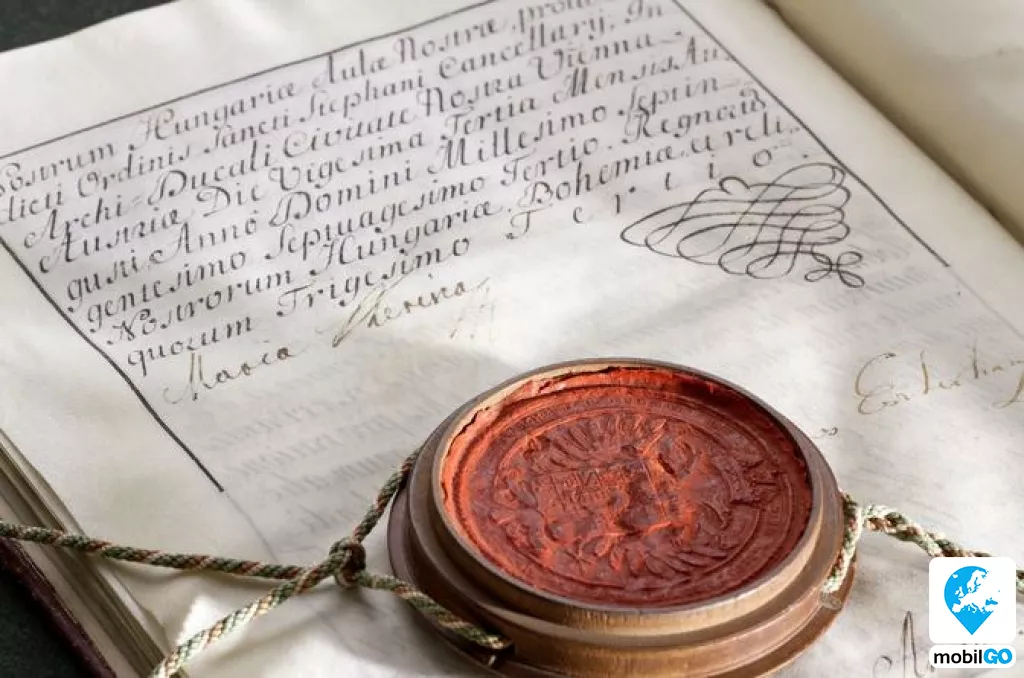 Nostrum Hungaricæ Aulæ Nostræ,
dicti Ordinis Sancti Stephani Cancellarij. In
Archi-Ducali Civitate Nostra Vienna
Austriæ Die Vigesima Tertia Mensis Au,
gusti, Anno Domini Millesimo Septin,
gentesimo Septuagesimo Tertio. Regnorũ
Nostrorum Hungariæ, Bohemiæ, et reli,
quorum Trigesimo Tertio.
Maria Theresia
mobilGO